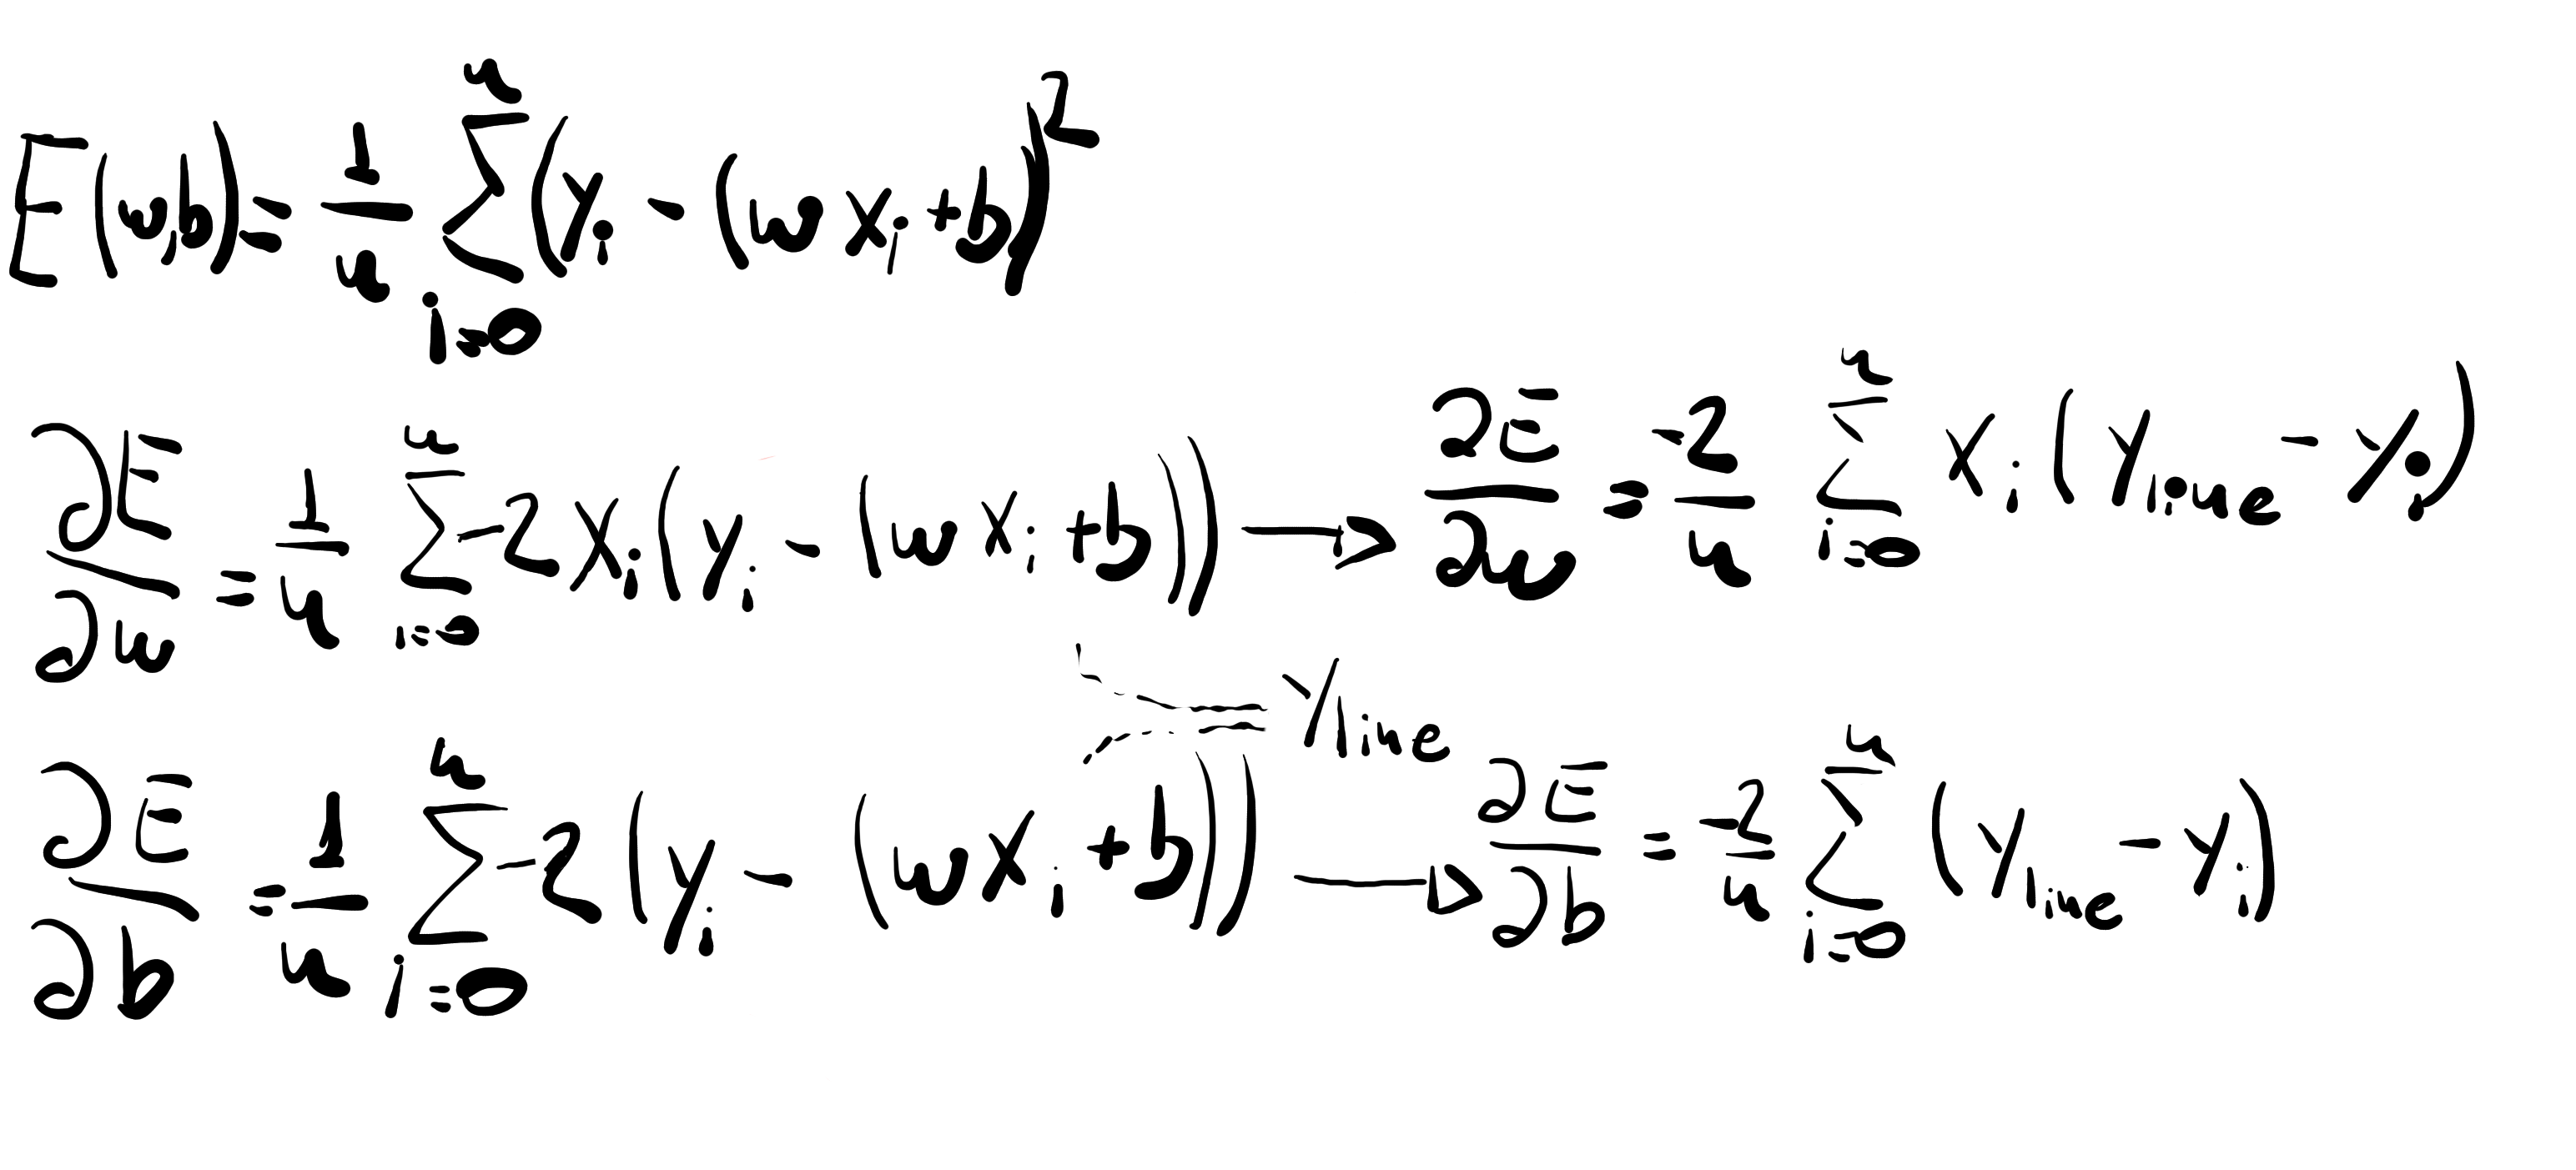 E(w,b) = 1/n ∑_{i=0}^{n} (y_i - (w x_i + b))^2
∂E/∂w = 1/n ∑_{i=0}^{n} -2x_i(y_i - (w x_i + b)) → ∂E/∂w = -2/n ∑_{i=0}^{n} x_i(y_line - y_i)
= y_line
∂E/∂b = 1/n ∑_{i=0}^{n} -2(y_i - (w x_i + b)) → ∂E/∂b = -2/n ∑_{i=0}^{n} (y_line - y_i)